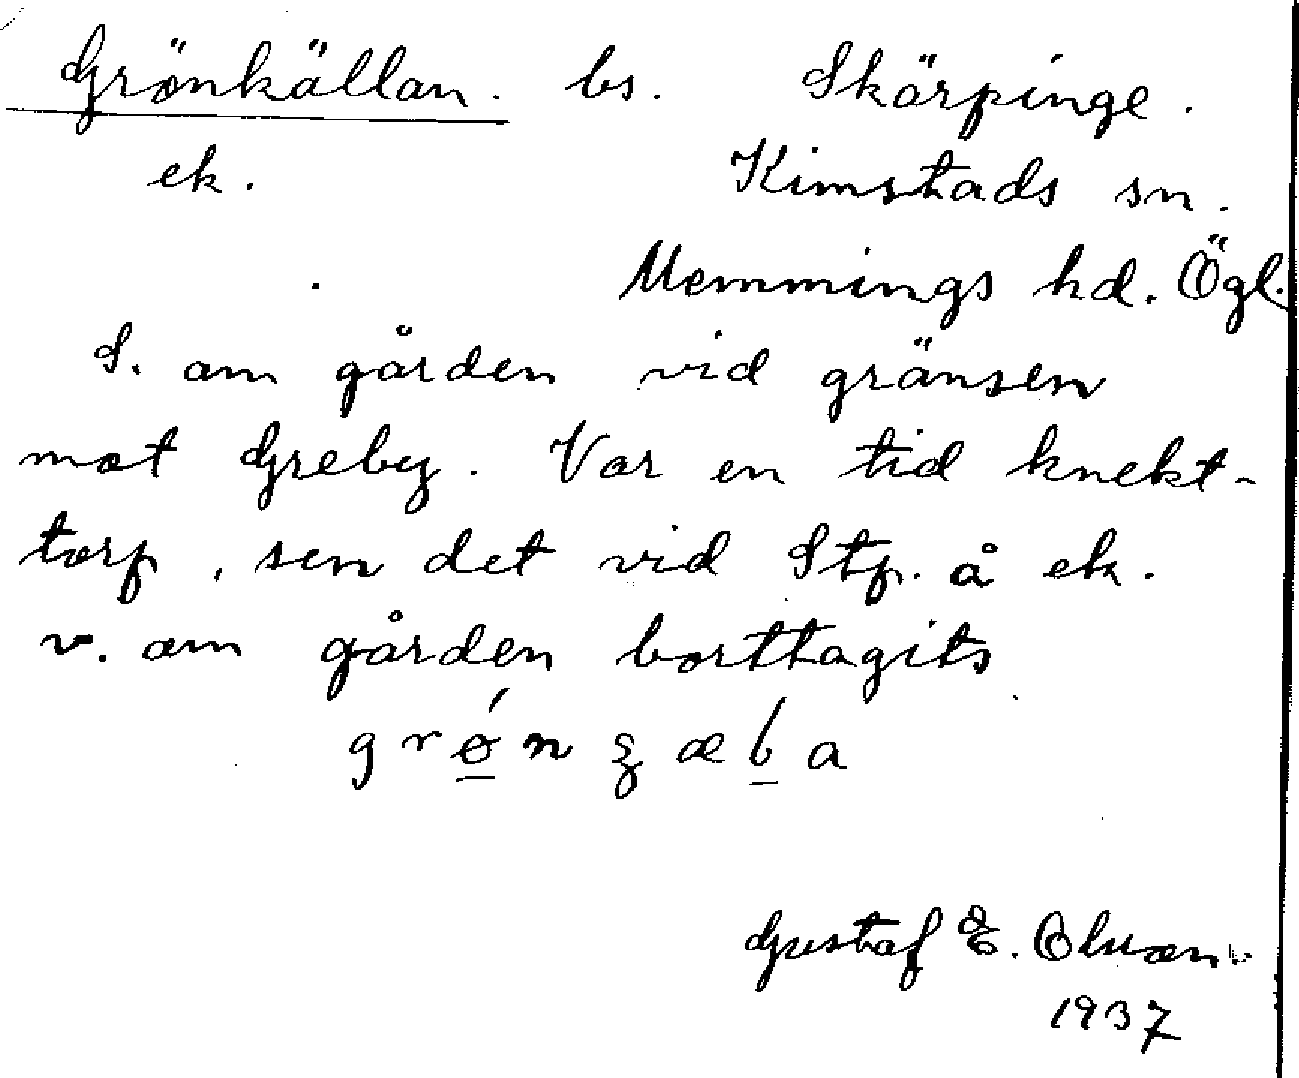 Grönkällan. bs. Skärpinge.
ek. Kimstads sn.
Memmings hd. Ögl.
S. om gården vid gränsen
mot Greby. Var en tid knekt-
torp, sen det vid Stp. å ek.
v. om gården borttagits
Gustaf E. Olsson
1937